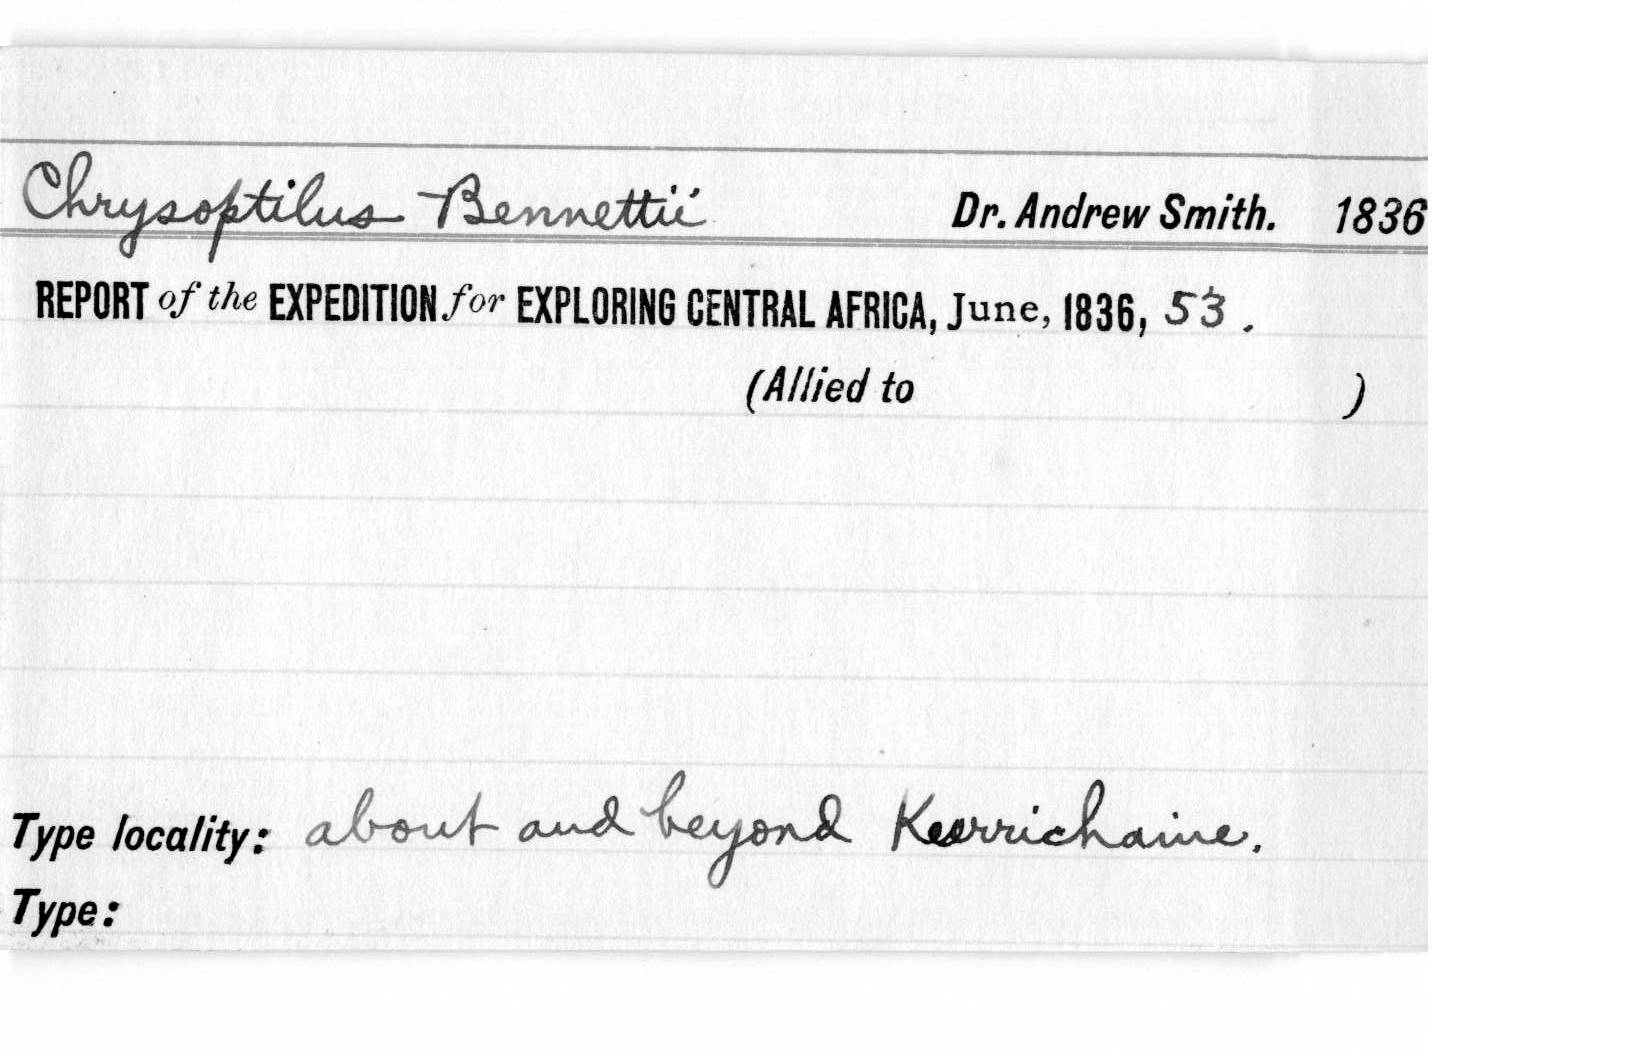 Chrysoptilus Bennettii Dr. Andrew Smith. 1836
REPORT of the EXPEDITION for EXPLORING CENTRAL AFRICA, June, 1836, 53.
(Allied to )
Type locality: about and beyond Kurrichaine.
Type: